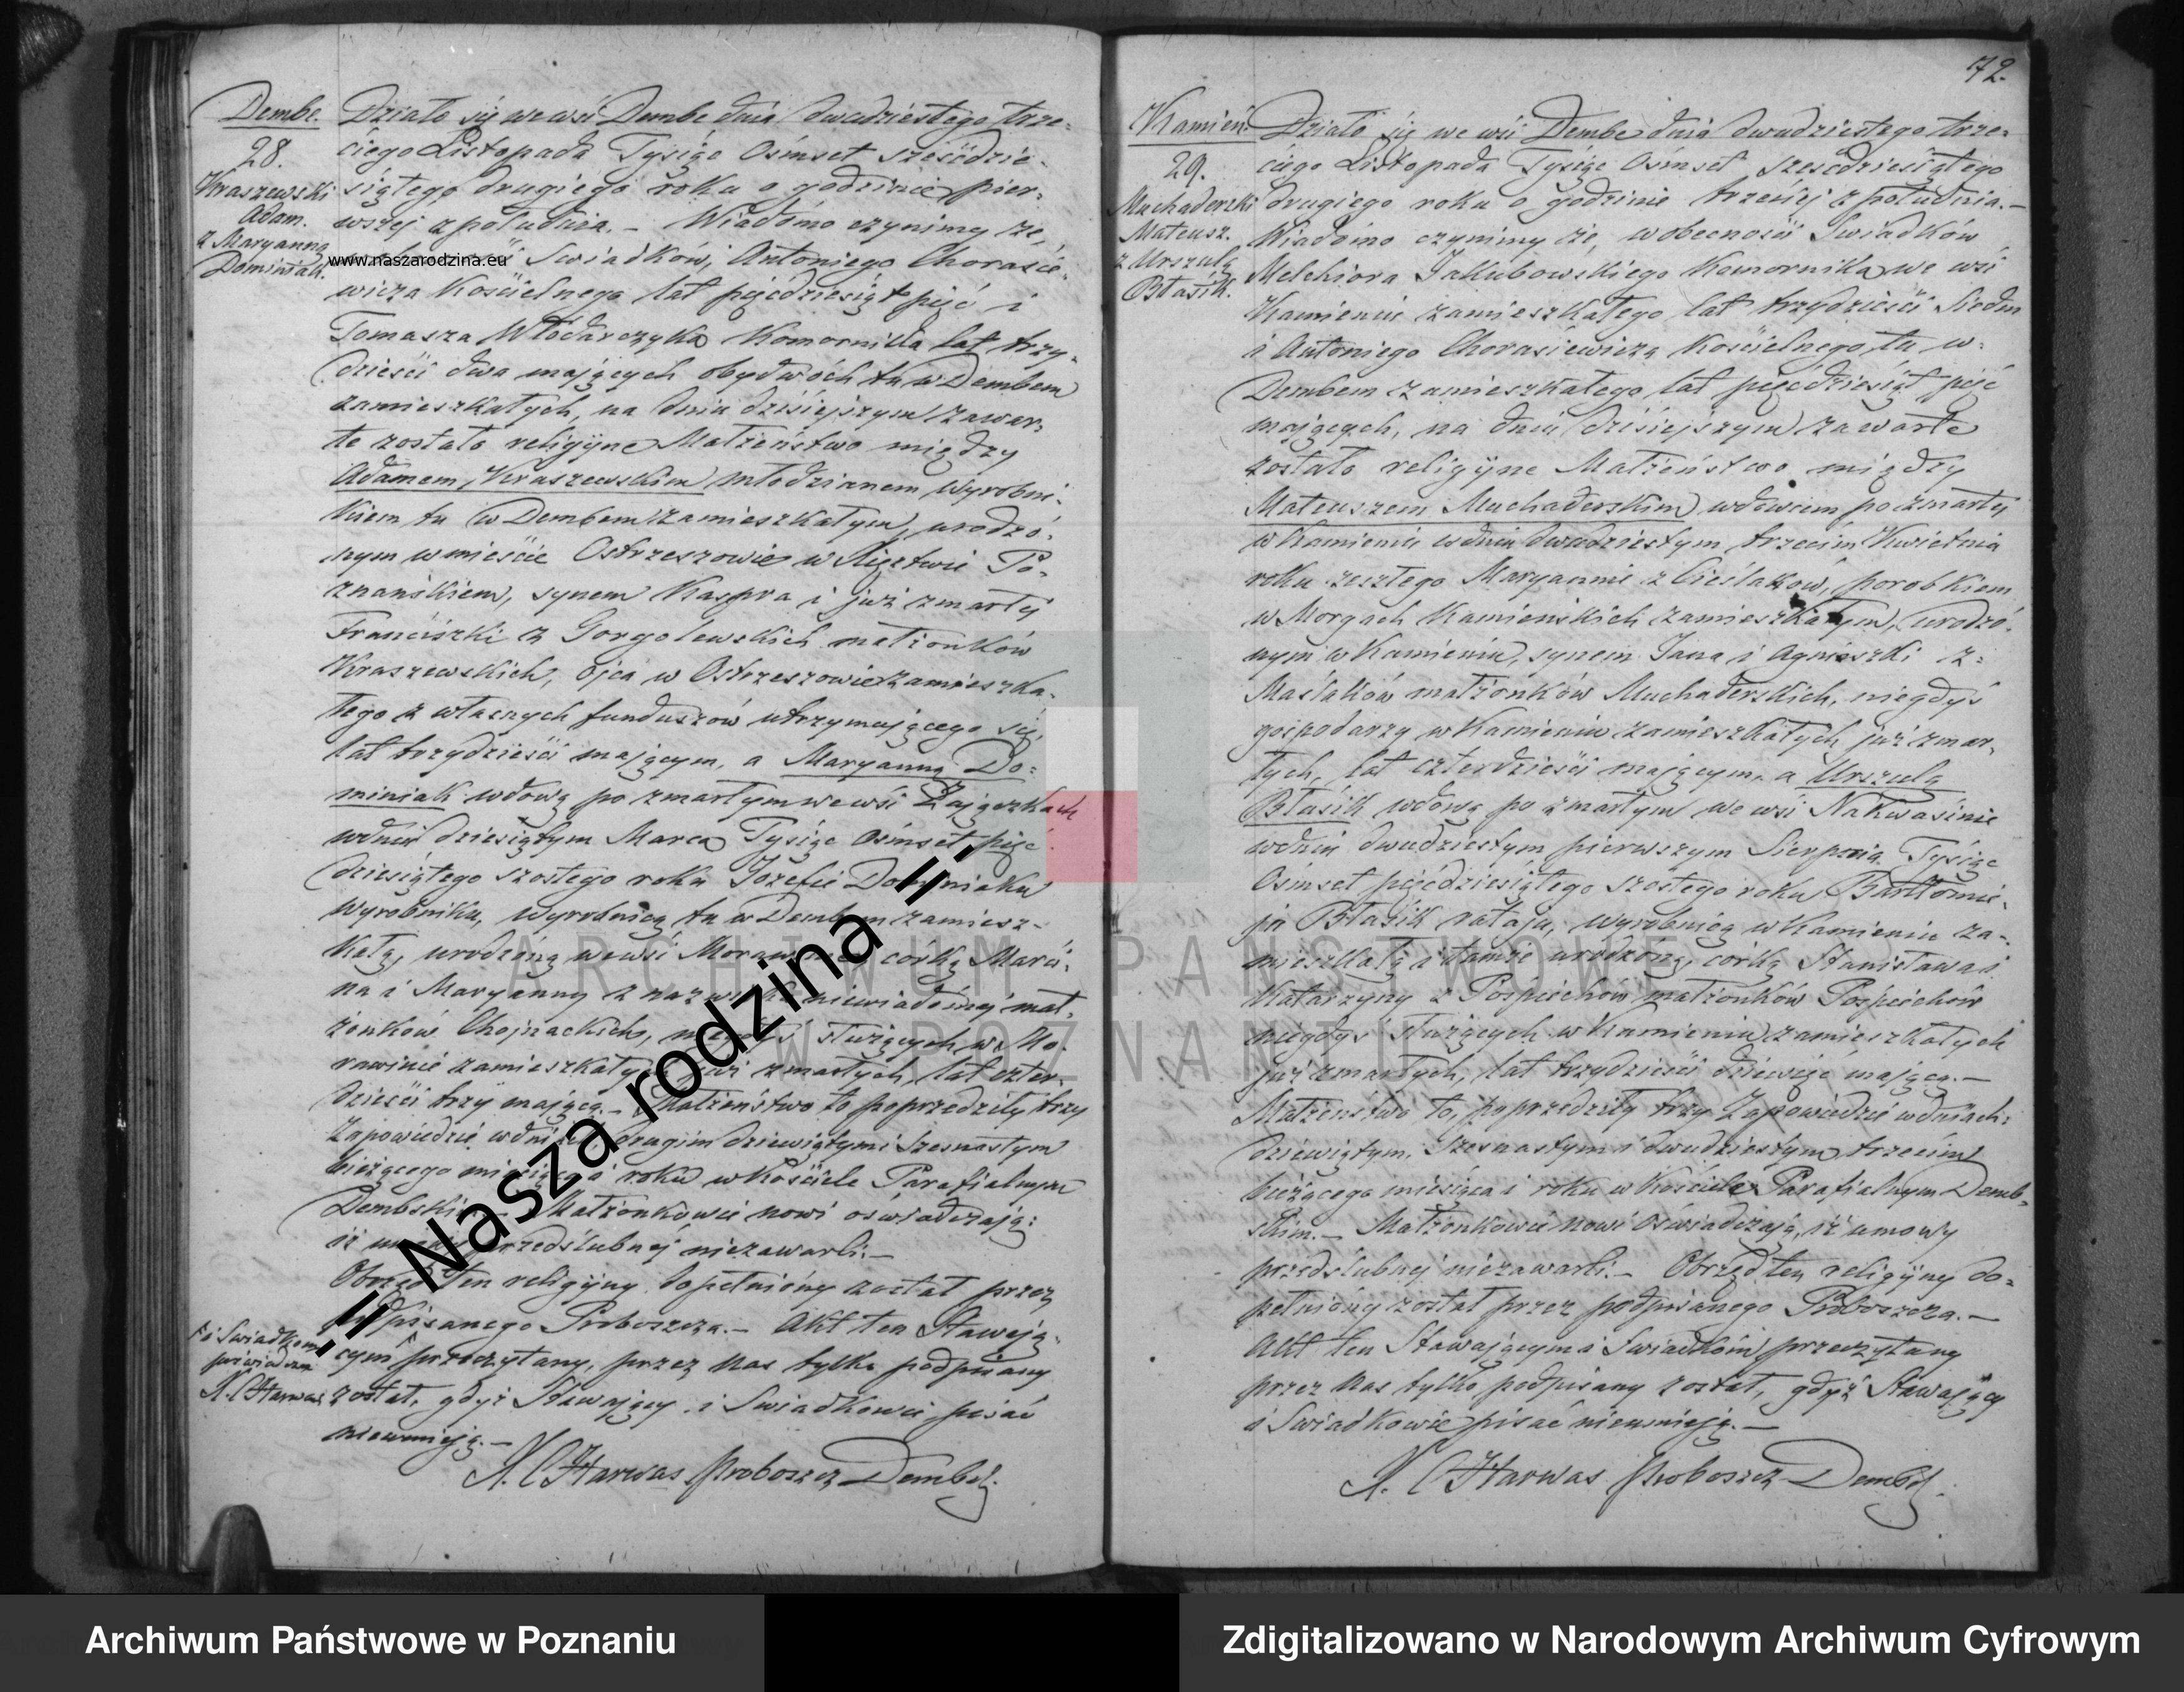 Dembe.
28.
Kraszewski
Adam.
z Maryanną
Dominiak.
Działo się we wsi Dembe dnia dwudziestego trze-
ciego Listopada Tysiąc Osimset sześćdzie-
siątego drugiego roku o godzinie pier-
wszej z południa. – Wiadomo czynimy że,
www.naszarodzina.eu Swiadków, Antoniego Chorasie-
wicza Kościelnego lat pięćdziesiąt pięć i
Tomasza Włodarczyka Komornika lat trzy-
dzieści dwa mających obydwóch tu w Dembem
zamieszkałych, na dniu dzisiejszym zawar-
te zostało religijne Małżeństwo między
Adamem Kraszewskim młodzianem wyrobni-
kiem tu w Dembem zamieszkałym, urodzo-
nym w mieście Ostrzeszowie w Xięztwie Po-
znańskiem, synem Kaspra i już zmarłej
Franciszki z Gorgolewskich małżonków
Kraszewskich, ojca w Ostrzeszowie zamieszka-
łego z własnych funduszów utrzymującego się,
lat trzydzieści mającym, a Maryanną Do-
miniak wdową po zmarłym we wsi Zajączkach
w dniu dziesiątym Marca Tysiąc Osimset pięć-
dziesiątego szóstego roku Józefie Dominiaku
wyrobniku, wyrobnicą tu w Dembem zamiesz-
kałą, urodzoną we wsi córką Marci-
na i Maryanny z nazwiska niewiadomej mał-
żonków Chojnackich, niegdyś służących w Mo-
rawinie zamieszkałych już zmarłych, lat czter-
dzieści trzy mającą. – Małżeństwo to poprzedziły trzy
Zapowiedzie w dniach drugim dziewiątym i szesnastym
bieżącego miesiąca i roku w Kościele Parafialnym
Dembskim. – Małżonkowie nowi oświadczają:
iż umowy przedślubnej niezawarli. –
Obrzęd ten religijny dopełniony został przez
podpisanego Proboszcza. – Akt ten Stawają-
cym przeczytany, przez nas tylko podpisany
został, gdyż Stawający i Swiadkowie pisać
nieumieją. –
i Swiadkom
poświadcza
X. C Harwas
X. C Harwas Proboszcz Dembs.
-= Nasza rodzina =-
72.
Kamień.
29.
Muchaderski
Mateusz.
z Urszulą
Błasik.
Działo się we wsi Dembe dnia dwudziestego trze-
ciego Listopada Tysiąc Osimset sześćdziesiątego
drugiego roku o godzinie trzeciej z południa. –
Wiadomo czynimy że, w obecności Swiadków
Melchiora Jakubowskiego Komornika we wsi
Kamieniu zamieszkałego lat trzydzieści siedm
i Antoniego Chorasiewicza Kościelnego tu w-
Dembem zamieszkałego lat pięćdziesiąt pięć
mających, na dniu dzisiejszym zawarte
zostało religijne Małżeństwo między
Mateuszem Muchaderskim wdowcem po zmarłej
w Kamieniu w dniu dwudziestym trzecim Kwietnia
roku zeszłego Maryannie z Cieślaków, parobkiem
w Morgach Kamieńskich zamieszkałym, urodzo-
nym w Kamieniu, synem Jana i Agnieszki z-
Maślaków małżonków Muchaderskich, niegdyś
gospodarzy w Kamieniu zamieszkałych już zmar-
łych, lat czterdzieści mającym, a Urszulą
Błasik wdową po zmarłym we wsi Nakwasinie
w dniu dwudziestym pierwszym Sierpnia Tysiąc
Osimset pięćdziesiątego szóstego roku Bartłomie-
ju Błasik rataju, wyrobnicą w Kamieniu za-
mieszkałą i tamże urodzoną, córką Stanisława i
Katarzyny z Pośpiechów małżonków Pośpiechów
niegdyś służących w Kamieniu zamieszkałych
już zmarłych, lat trzydzieści dziewięć mającą. –
Małżeństwo to, poprzedziły trzy Zapowiedzie w dniach:
dziewiątym, szesnastym i dwudziestym trzecim
bieżącego miesiąca i roku w Kościele Parafialnym Demb-
skim. – Małżonkowie nowi oświadczają, iż umowy
przedślubnej niezawarli. – Obrzęd ten religijny do-
pełniony został przez podpisanego Proboszcza. –
Akt ten Stawającym i Swiadkom przeczytany
przez nas tylko podpisany został, gdyż Stawający
i Swiadkowie pisać nieumieją. –
X. C Harwas Proboszcz Dembs.
ARCHIWUM PAŃSTWOWE
W POZNANIU
Archiwum Państwowe w Poznaniu
Zdigitalizowano w Narodowym Archiwum Cyfrowym